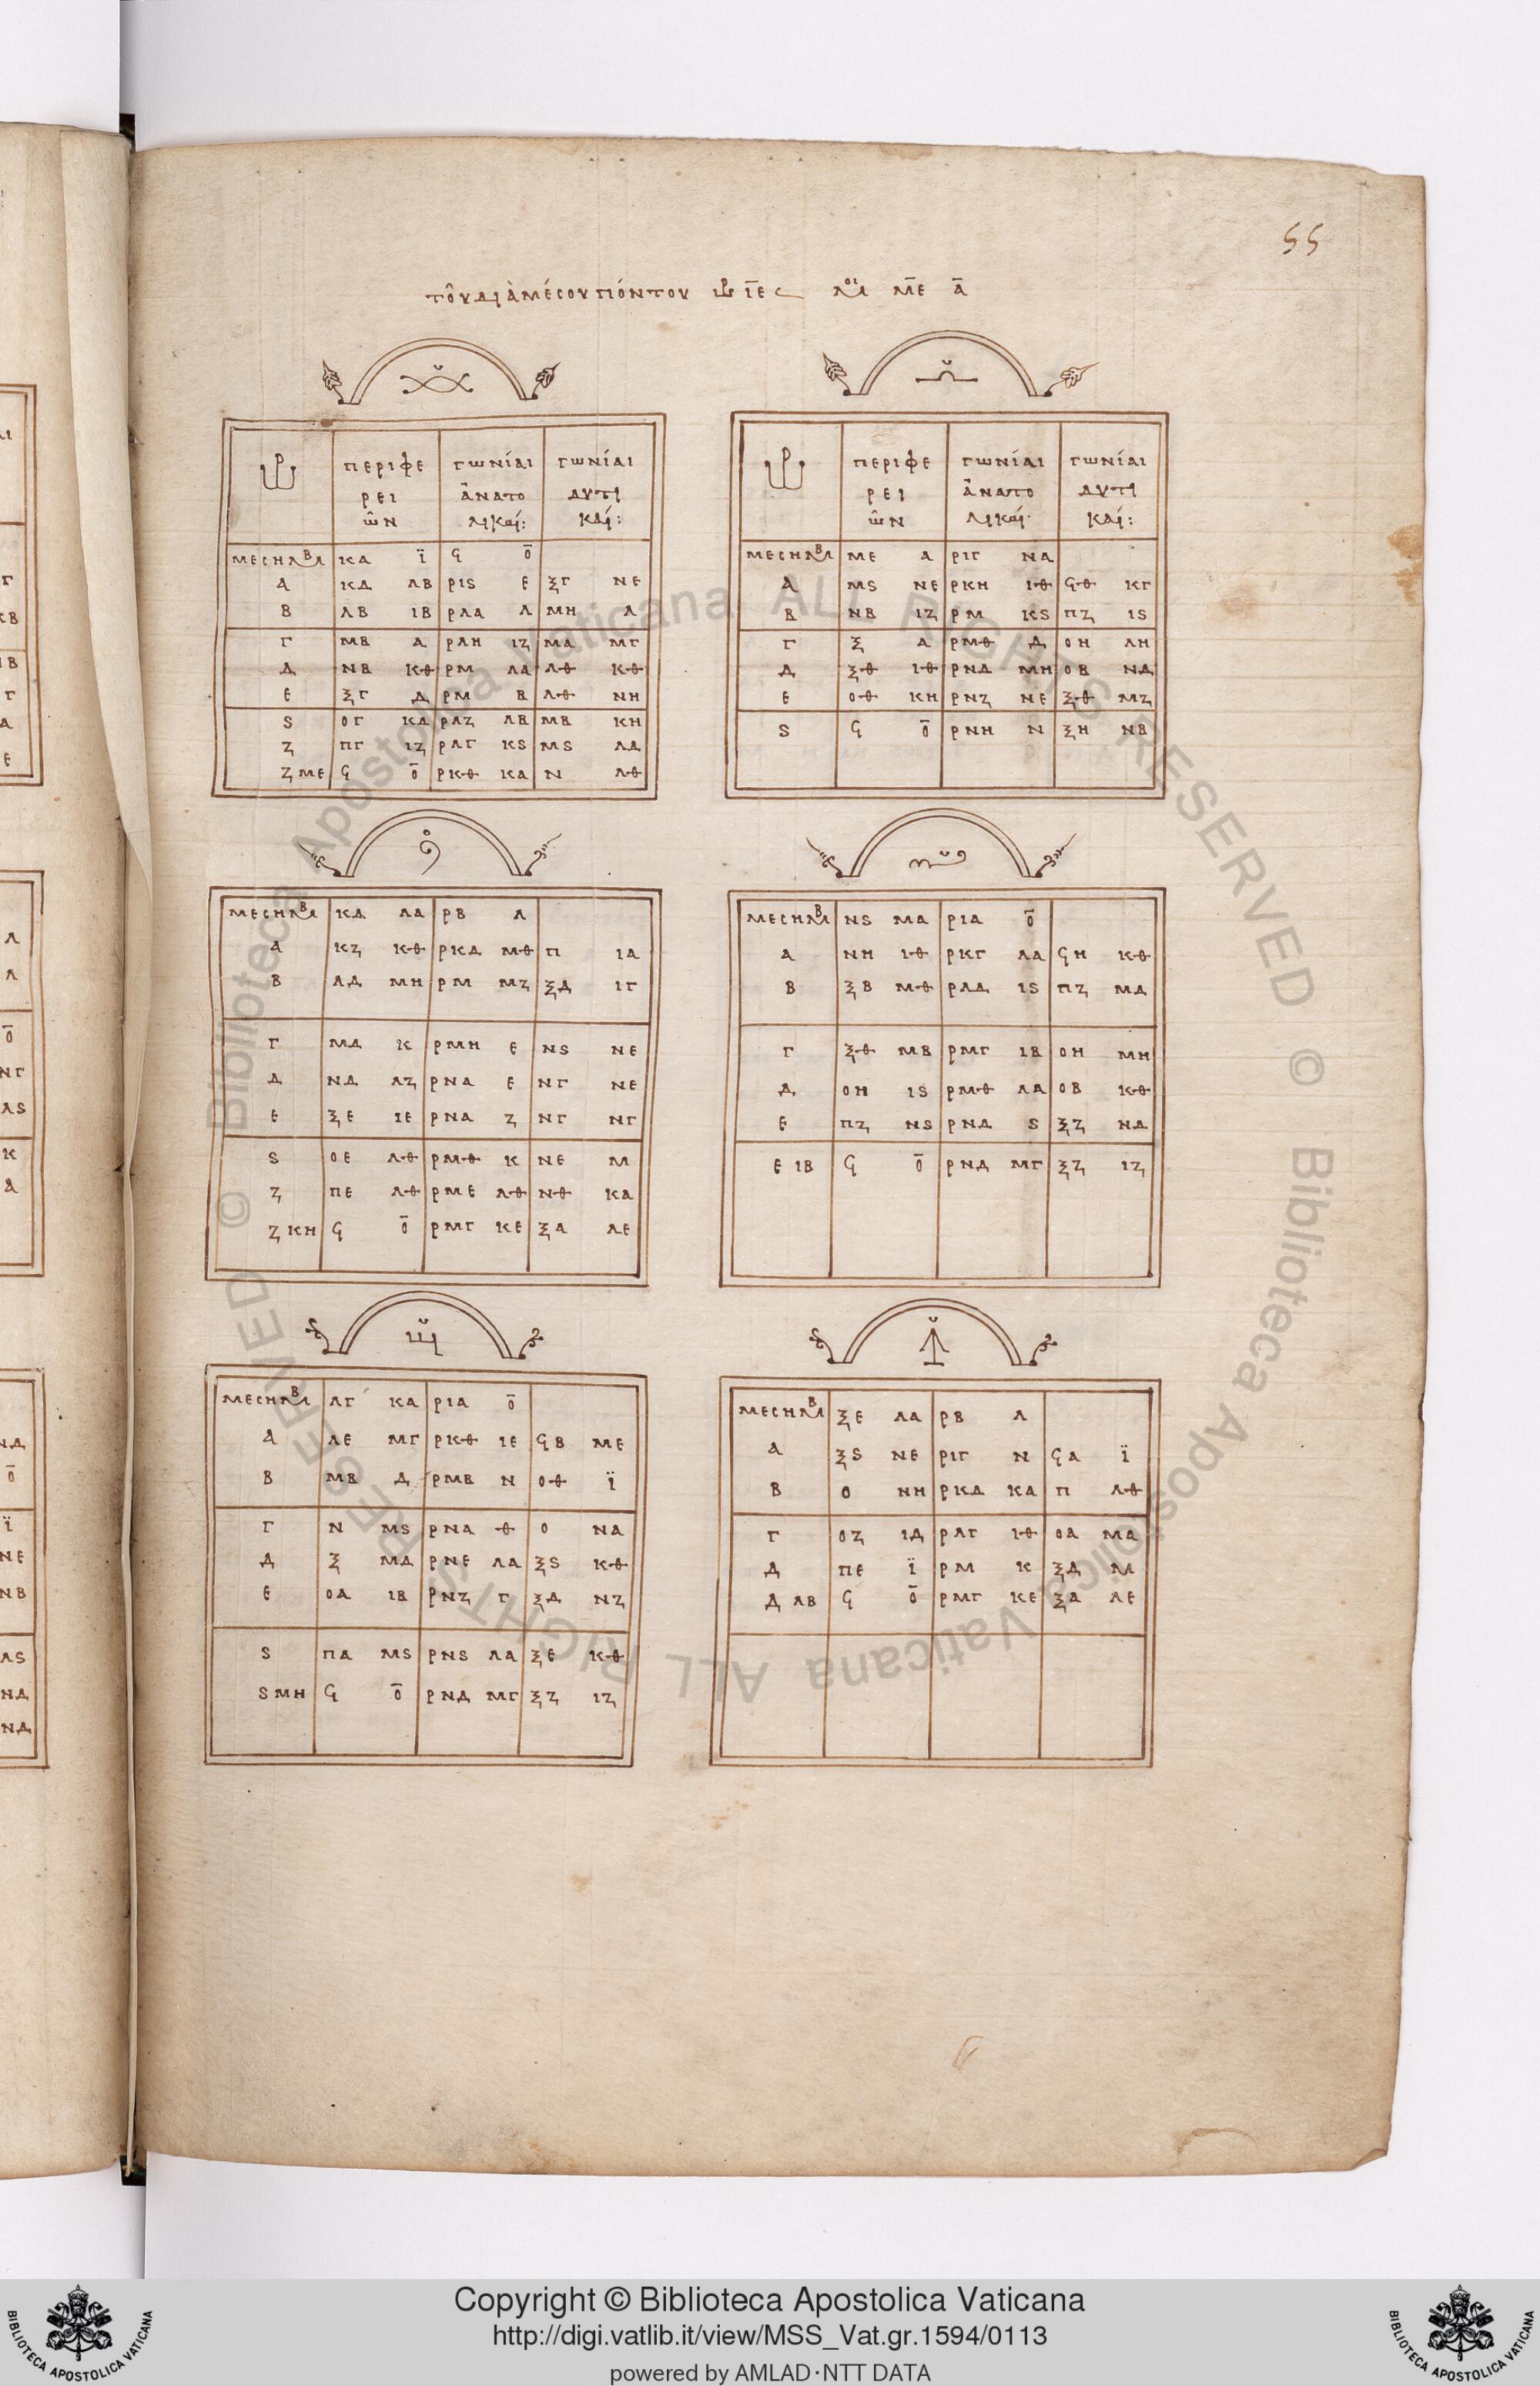 55
τοῦ διὰ μέσου πόντου ὡρ ιε μοι με α
ὡρ περιφε γωνίαι γωνίαι
ρει ἀνατο δυτι
ῶν λικαί: καί:
μεσημβ κα ι ϟ ο
α κδ λβ ριϛ ε ξγ νε
β λβ ιβ ρλα λ μη λ
γ μβ α ρλη ιζ μα μγ
δ νβ κθ ρμ λα λθ κθ
ε ξγ δ ρμ β λθ νη
ϛ ογ κα ρλζ λβ μβ κη
ζ πγ ιζ ρλγ κϛ μϛ λδ
ζ με ϟ ο ρκθ κα ν λθ
ὡρ περιφε γωνίαι γωνίαι
ρει ἀνατο δυτι
ῶν λικαί καί:
μεσημβ με α ριγ να
α μϛ νε ρκη ιθ ϟθ κγ
β νβ ιζ ρμ κϛ πζ ιϛ
γ ξ α ρμθ δ οη λη
δ ξθ ιθ ρνδ μη οβ νδ
ε οθ κη ρνζ νε ξθ μζ
ϛ ϟ ο ρνη ν ξη νβ
μεσημβ κδ λα ρβ λ
α κζ κθ ρκδ μθ π ια
β λδ μη ρμ μζ ξδ ιγ
γ μδ κ ρμη ε νϛ νε
δ νδ λζ ρνα ε νγ νε
ε ξε ιε ρνα ζ νγ νγ
ϛ οε λθ ρμθ κ νε μ
ζ πε λθ ρμε λθ νθ κα
ζ κη ϟ ο ρμγ κε ξα λε
μεσημβ νϛ μα ρια ο
α νη ιθ ρκγ λα ϟη κθ
β ξβ μθ ρλδ ιϛ πζ μδ
γ ξθ μβ ρμγ ιβ οη μη
δ οη ιϛ ρμθ λα οβ κθ
ε πζ νϛ ρνδ ϛ ξζ νδ
ε ιβ ϟ ο ρνδ μγ ξζ ιζ
μεσημβ λγ κα ρια ο
α λε μγ ρκθ ιε ϟβ με
β μβ δ ρμβ ν οθ ι
γ ν μϛ ρνα θ ο να
δ ξ μδ ρνε λα ξϛ κθ
ε οα ιβ ρνζ γ ξδ νζ
ϛ πα μϛ ρνϛ λα ξε κθ
ϛ μη ϟ ο ρνδ μγ ξζ ιζ
μεσημβ ξε λα ρβ λ
α ξϛ νε ριγ ν ϟα ι
β ο νη ρκδ κα π λθ
γ οζ ιδ ρλγ ιθ οα μα
δ πε ι ρμ κ ξδ μ
δ λβ ϟ ο ρμγ κε ξα λε
Copyright © Biblioteca Apostolica Vaticana
http://digi.vatlib.it/view/MSS_Vat.gr.1594/0113
powered by AMLAD·NTT DATA